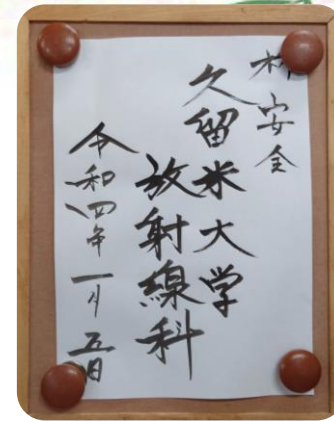 安全
久留米大学
放射線科
令和四年一月五日